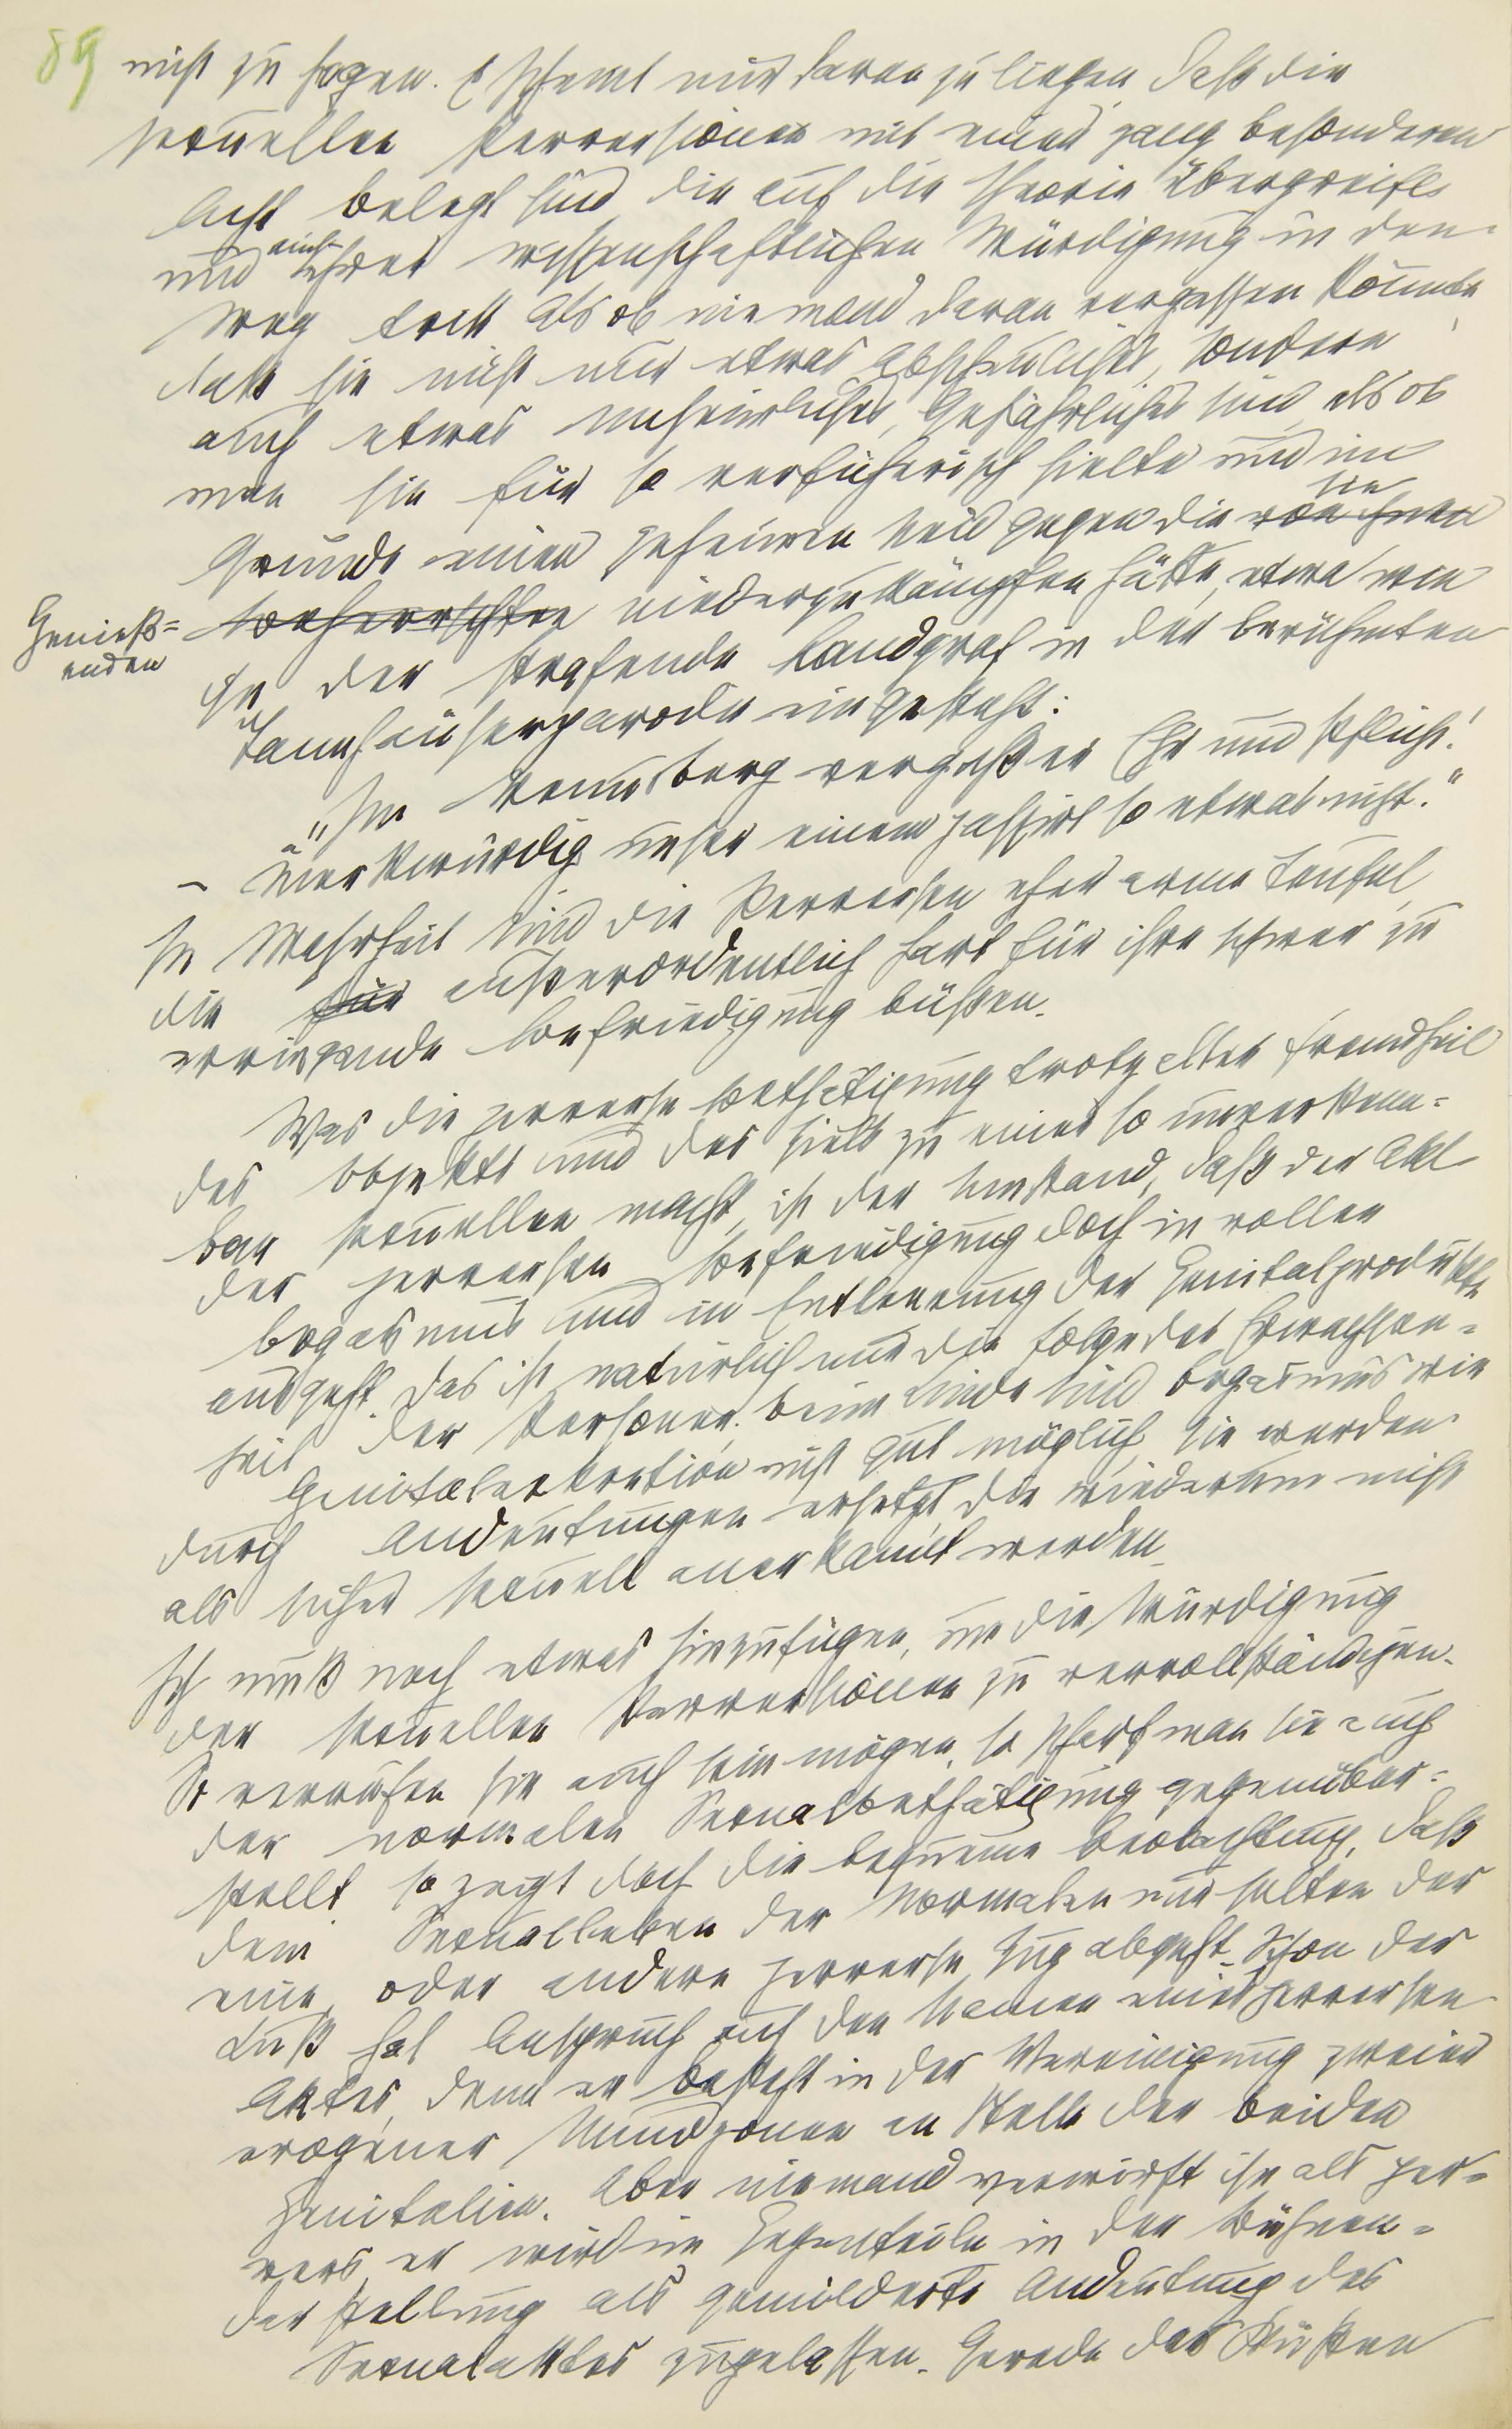 89
nicht zu sagen. Es scheint nur daran zu liegen daß die
sexuellen Perversionen mit einer ganz besonderen
Acht belegt sind die auf die Theorie übergreift
und auch ihrer wissenschaftlichen Würdigung in den
Weg tritt als ob niemand daran vergessen könnte,
daß sie nicht nur etwas abscheuliches, sondern
auch etwas unheimliches, gefährliches sind, als ob
man sie für so verführerisch hielte und im
Grunde einen geheimen Neid gegen die von ihnen sie
Beherrschten niederzukämpfen hätte, etwa wie
Genieß=
enden
ihn der strafende Landgraf in der berühmten
Tannhäuserparodie eingesteht:
„Im Venusberg vergaß er Ehr und Pflicht!
– Merkwürdig unser einem passirt so etwas nicht.“
In Wahrheit sind die Perversen eher arme Teufel,
die für außerordentlich hart für ihre schwer zu
erringende Befriedigung büßen.
Was die perverse Bethätigung trotz aller Fremdheit
des Objekts und der Ziele zu einer so unverkenn=
bar sexuellen macht, ist der Umstand, daß der Akt
der perversen Befriedigung doch in vollen
Orgasmus und in Entleerung der Genitalprodukte
ausgeht. Das ist natürlich nur die Folge der Erwachsen=
heit der Personen; beim Kinde sind Orgasmus wie
Genitalexkretion nicht gut möglich, sie werden
durch Andeutungen ersetzt, die wiederum nicht
als sicher sexuell anerkannt werden.
Ich muß noch etwas hinzufügen, um die Würdigung
der sexuellen Perversionen zu vervollständigen.
So verrufen sie auch sein mögen, so scharf man sie auch
der normalen Sexualbethätigung gegenüber=
stellt so zeigt doch die bequeme Beobachtung, daß
dem Sexualleben der Normalen nur selten der
eine oder andere perverse Zug abgeht. Schon der
Kuß hat Anspruch auf den Namen eines perversen
Aktes, denn er besteht in der Vereinigung zweier
erogener Mundzonen an Stelle der beiden
Genitalien. Aber niemand verwirft ihn als per=
vers, er wird im Gegenteile in der Bühnen=
darstellung als gemilderte Andeutung des
Sexualaktes zugelassen. Gerade das Küssen